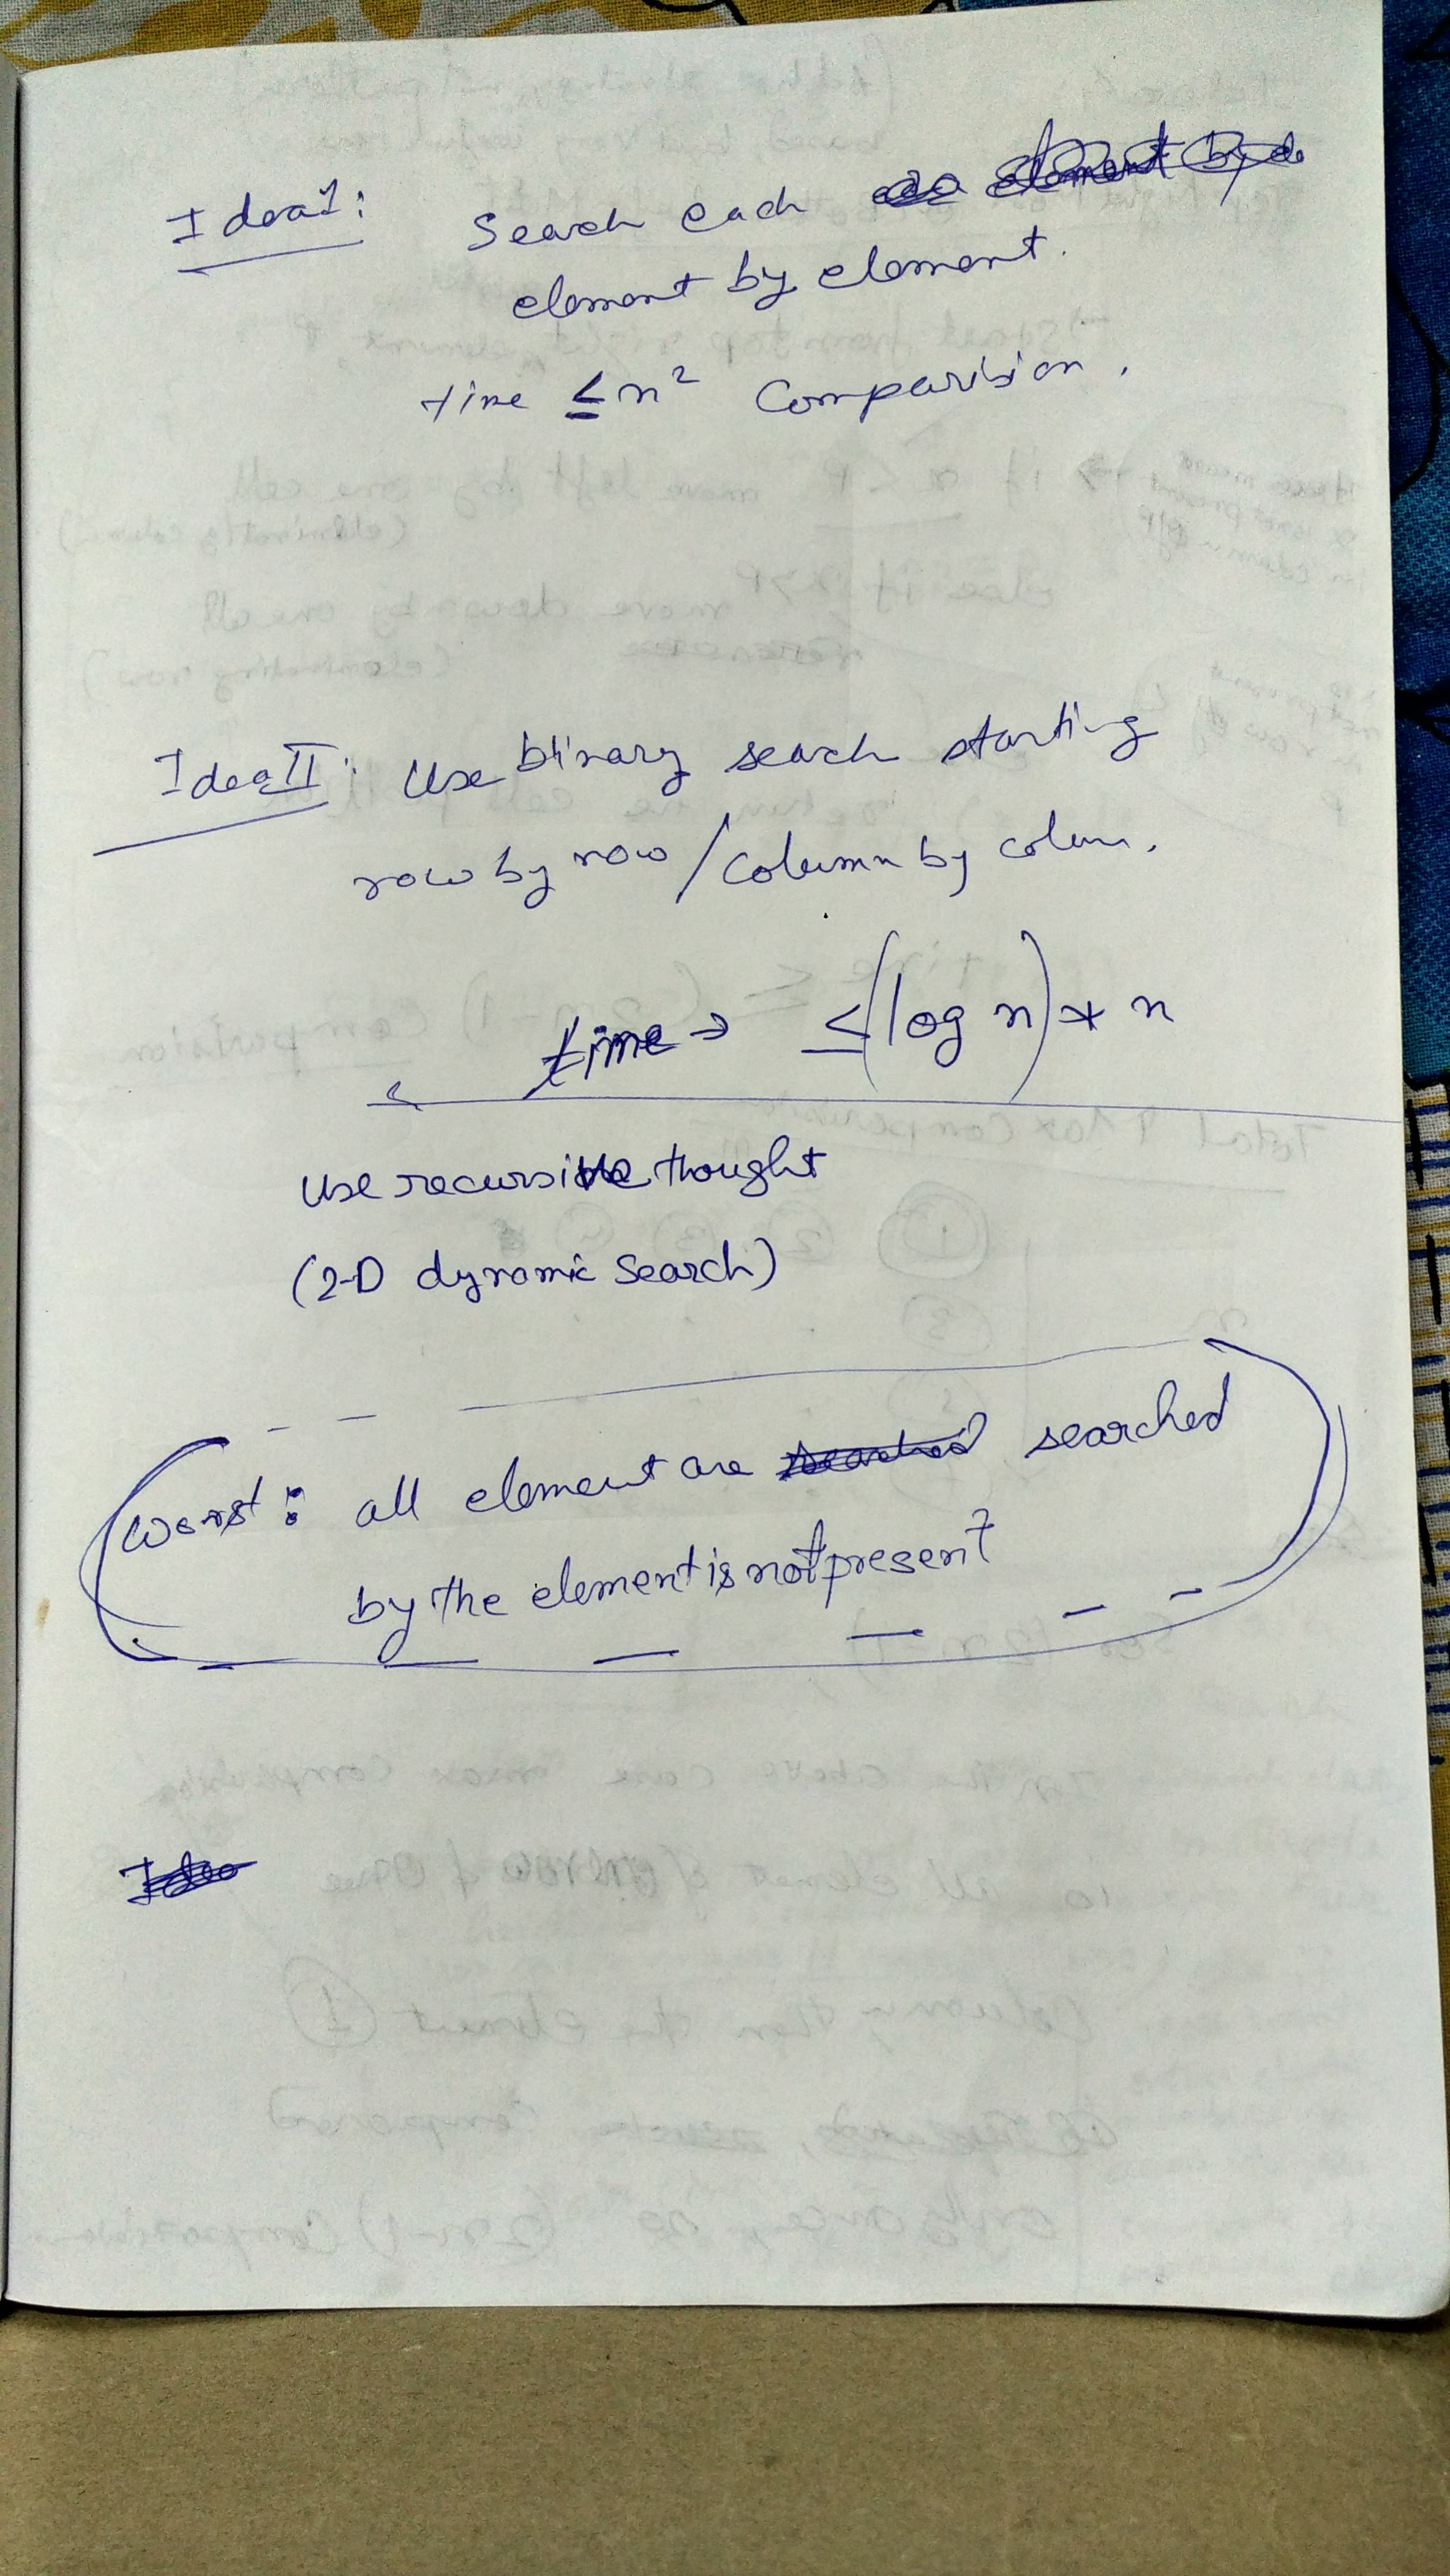 Idea1: Search each
element by element.
time ≤ n² Comparision.
Idea II: Use binary search starting
row by row / Column by colum.
time → ≤ (log n) * n
Use recursive thought
(2-D dynamic Search)
Worst: all element are searched
by the element is not present